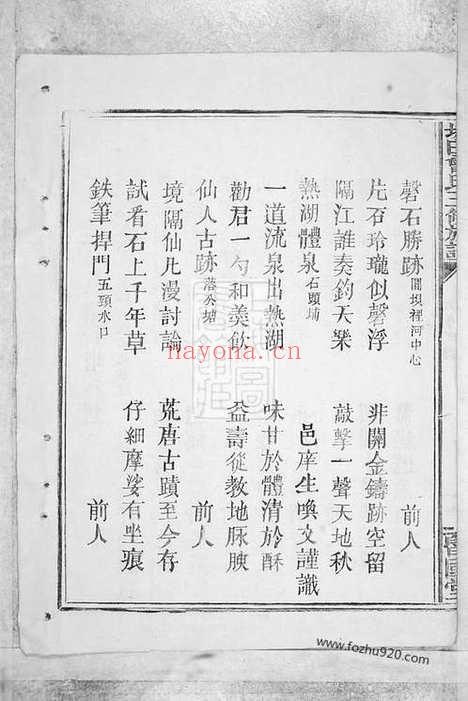 磬石勝跡 閘坝裡河中心 前人
片石玲瓏似磬浮 非關金鑄跡空留
隔江誰奏鈞天樂 敲擊一聲天地秋
熱湖體泉 石頭埔 邑庠生喚文謹識
一道流泉出熱湖 味甘於體清於酥
勸君一勺和羮飲 益壽從教地脉腴
仙人古跡 落公塘 前人
境隔仙凡漫討論 荒唐古蹟至今存
試看石上千年草 仔細摩娑有坐痕
鉄筆捍門 五頸水口 前人
hayona.cn
www.fozhu920.com